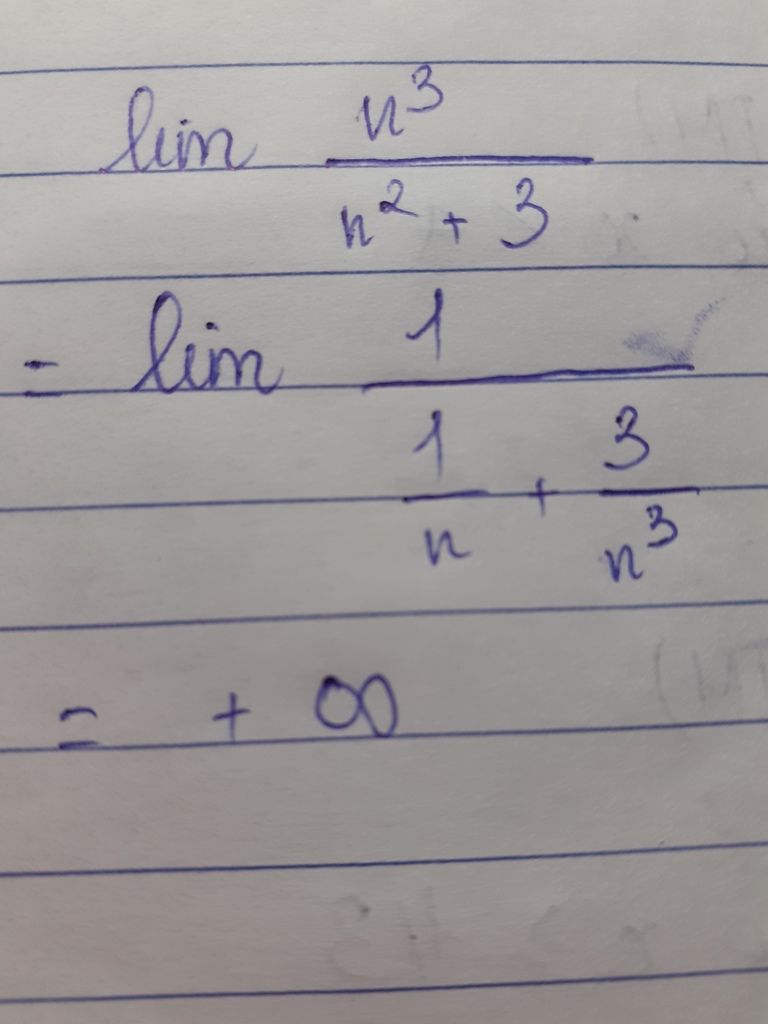 lim n³/(n² + 3)
= lim 1/(1/n + 3/n³)
= + ∞